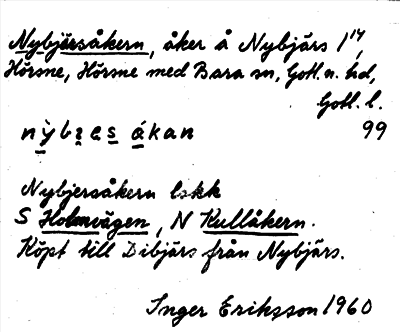 Nybjersåkern, åker å Nybjärs 1¹⁴,
Hörsne, Hörsne med Bara sn, Gotl. n. hd,
Gotl. l.
99
Nybjersåkern lskk
S Holmvägen, N Kullåkern.
Köpt till Dibjärs från Nybjärs.
Inger Eriksson 1960